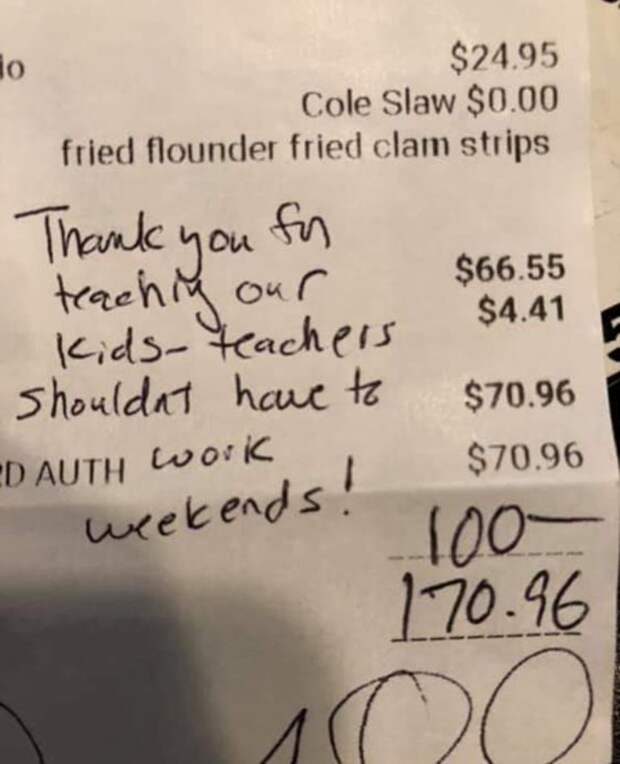 $24.95
Cole Slaw $0.00
fried flounder fried clam strips
Thank you for
teaching our
$66.55
$4.41
kids- teachers
shouldnt have to
$70.96
D AUTH work
$70.96
weekends!
100-
170.96
100